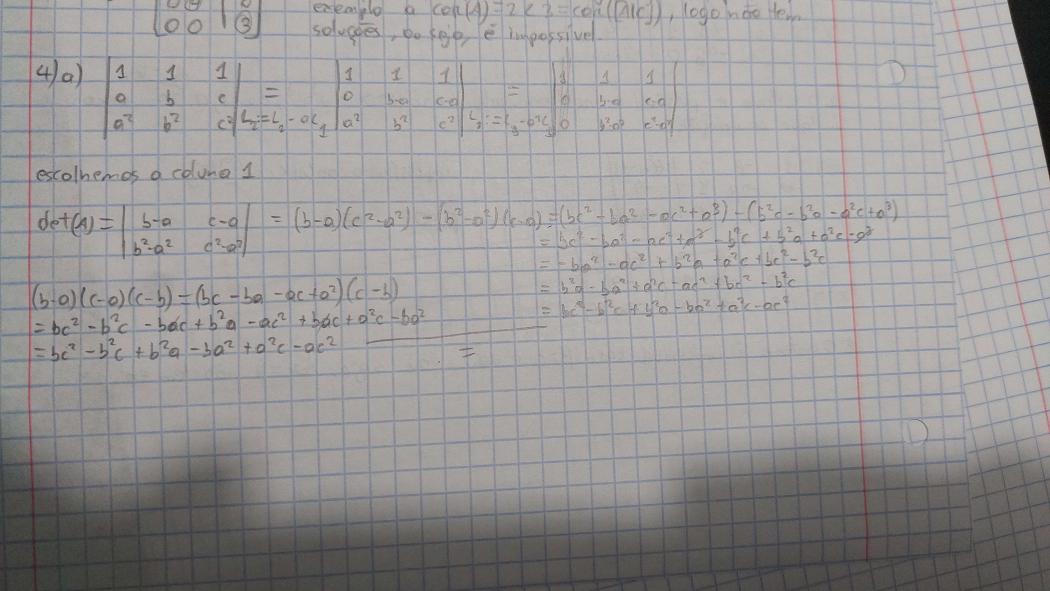 0 0 | 3
exemplo a car(A)=2<3=car([A|C]), logo não tem
soluções, ou seja, é impossível.
4)a) | 1 1 1 | = | 1 1 1 | = | 1 1 1 |
a b c 0 b-a c-a 0 b-a c-a
a² b² c² | L₂:=L₂-aL₁ a² b² c² | L₃:=L₃-a²L₁ 0 b²-a² c²-a²
escolhemos a coluna 1
det(A)= | b-a c-a | = (b-a)(c²-a²) - (b²-a²)(c-a) = (bc²-ba²-ac²+a³)-(b²c-b²a-a²c+a³)
b²-a² c²-a²
= bc²-ba²-ac²+a³-b²c+b²a+a²c-a³
= -ba²-ac²+b²a+a²c+bc²-b²c
= b²a-ba²+a²c-ac²+bc²-b²c
= bc²-b²c+b²a-ba²+a²c-ac²
(b-a)(c-a)(c-b)=(bc-ba-ac+a²)(c-b)
= bc²-b²c-bac+b²a-ac²+bac+a²c-ba²
= bc²-b²c+b²a-ba²+a²c-ac²
=